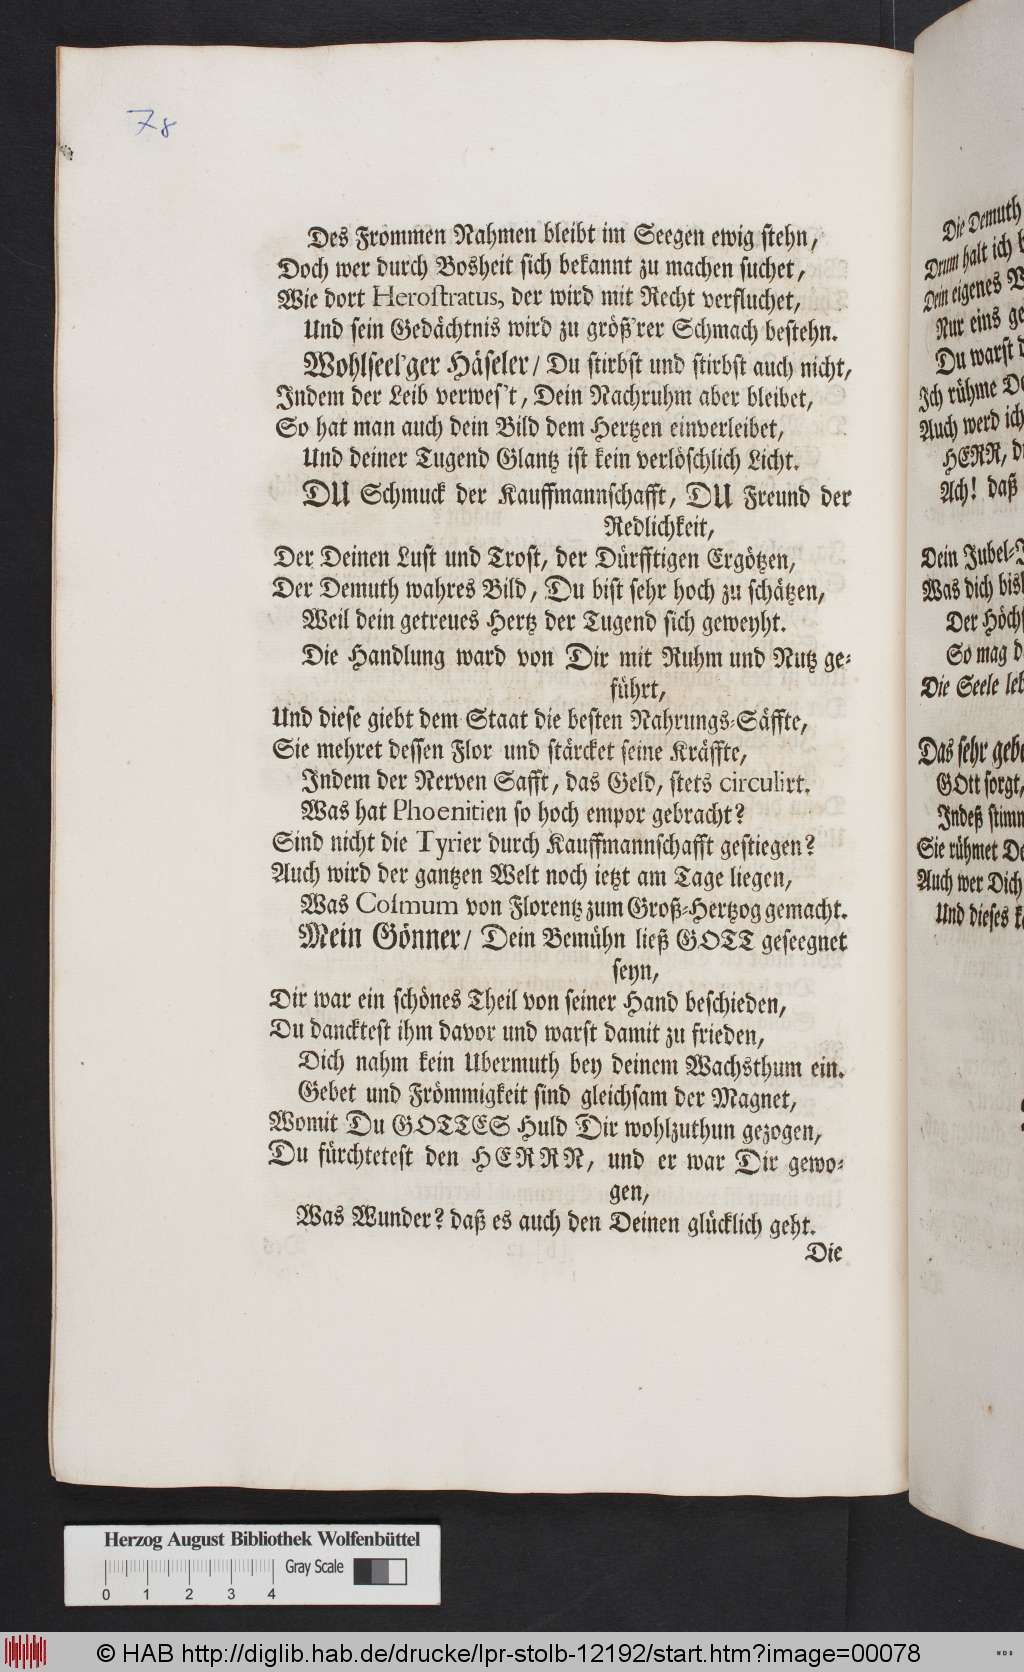 78
Des Frommen Nahmen bleibt im Seegen ewig stehn,
Doch wer durch Bosheit sich bekannt zu machen suchet,
Wie dort Herostratus, der wird mit Recht verfluchet,
Und sein Gedächtnis wird zu größ'rer Schmach bestehn.
Wohlseel'ger Häseler / Du stirbst und stirbst auch nicht,
Indem der Leib verwes't, Dein Nachruhm aber bleibet,
So hat man auch dein Bild dem Hertzen einverleibet,
Und deiner Tugend Glantz ist kein verlöschlich Licht.
DU Schmuck der Kauffmannschafft, DU Freund der
Redlichkeit,
Der Deinen Lust und Trost, der Dürfftigen Ergötzen,
Der Demuth wahres Bild, Du bist sehr hoch zu schätzen,
Weil dein getreues Hertz der Tugend sich geweyht.
Die Handlung ward von Dir mit Ruhm und Nutz ge-
führt,
Und diese giebt dem Staat die besten Nahrungs-Säffte,
Sie mehret dessen Flor und stärcket seine Kräffte,
Indem der Nerven Safft, das Geld, stets circulirt.
Was hat Phoenitien so hoch empor gebracht?
Sind nicht die Tyrier durch Kauffmannschafft gestiegen?
Auch wird der gantzen Welt noch ietzt am Tage liegen,
Was Cosmum von Florentz zum Groß-Hertzog gemacht.
Mein Gönner / Dein Bemühn ließ GOTT geseegnet
seyn,
Dir war ein schönes Theil von seiner Hand beschieden,
Du dancktest ihm davor und warst damit zu frieden,
Dich nahm kein Ubermuth bey deinem Wachsthum ein.
Gebet und Frömmigkeit sind gleichsam der Magnet,
Womit Du GOTTES Huld Dir wohlzuthun gezogen,
Du fürchtetest den HERRN, und er war Dir gewo-
gen,
Was Wunder? daß es auch den Deinen glücklich geht.
Die
Die Demuth
Drum halt ich
Dein eigenes
Nur eins
Du warst
Ich rühme
Auch werd ich
HERR,
Ach! daß
Dein Jubel-
Was dich
Der
So mag
Die Seele
Das sehr
GOtt sorgt,
Indeß
Sie rühmet
Auch wer Dich
Und dieses
Herzog August Bibliothek Wolfenbüttel
Gray Scale
0 1 2 3 4
© HAB http://diglib.hab.de/drucke/lpr-stolb-12192/start.htm?image=00078